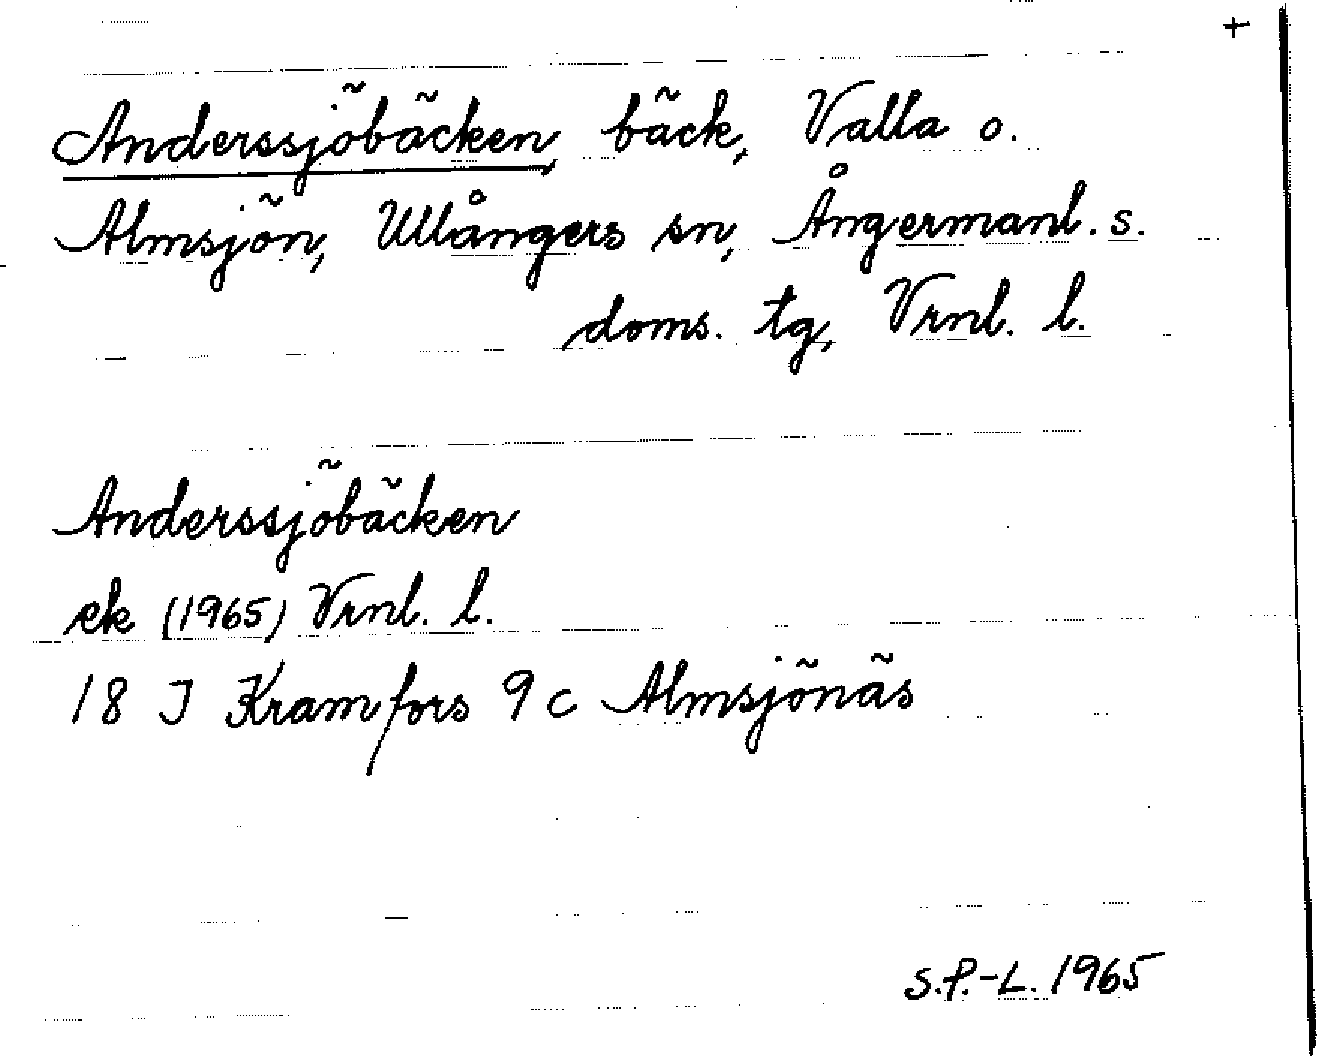 +
Anderssjöbäcken, bäck, Valla o.
Almsjön, Ullångers sn, Ångermanl. s.
doms. tg, Vrnl. l.
Anderssjöbäcken
ek (1965) Vrnl. l.
18 J Kramfors 9 c Almsjönäs
S.P.-L. 1965